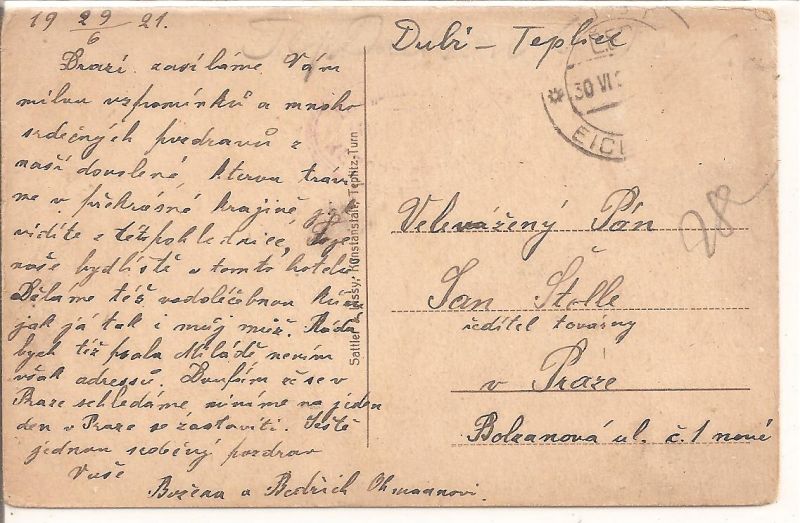 19 29/6 21.
Drazí zasíláme Vám
milou vzpomínků a mnoho
srdečných pozdravů z
naší dovolené kterou tráví
me v překrásné krajině, jak
vidíte z této pohlednice, To je
naše bydliště v tomto hotelu
Děláme též vodoléčebnou kúru
jak já tak i můj muž. Ráda
bych též psala Miládě nevím
však adressů. Doufám že se v
Praze schledáme, míníme na jeden
den v Praze se zastaviti. Ještě
jednou srdečný pozdrav
Vaše
Božena a Bedřich Ohmannovi.
Sattler Kunstanstalt, Teplitz-Turn
Dubí – Teplice
30 VI
EICH
Velevážený Pán
Jan Štolle
ředitel továrny
v Praze
Bolzanová ul. č. 1 nové